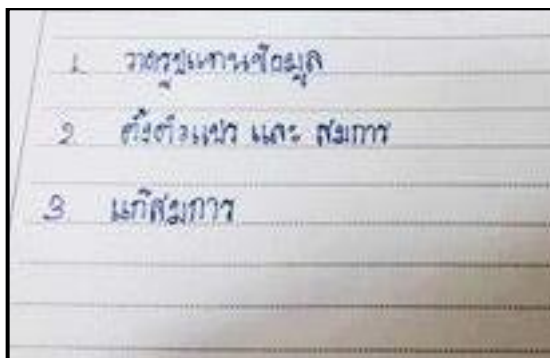 1. วาดรูปแทนข้อมูล
2. ตั้งตัวแปร และ สมการ
3 แก้สมการ